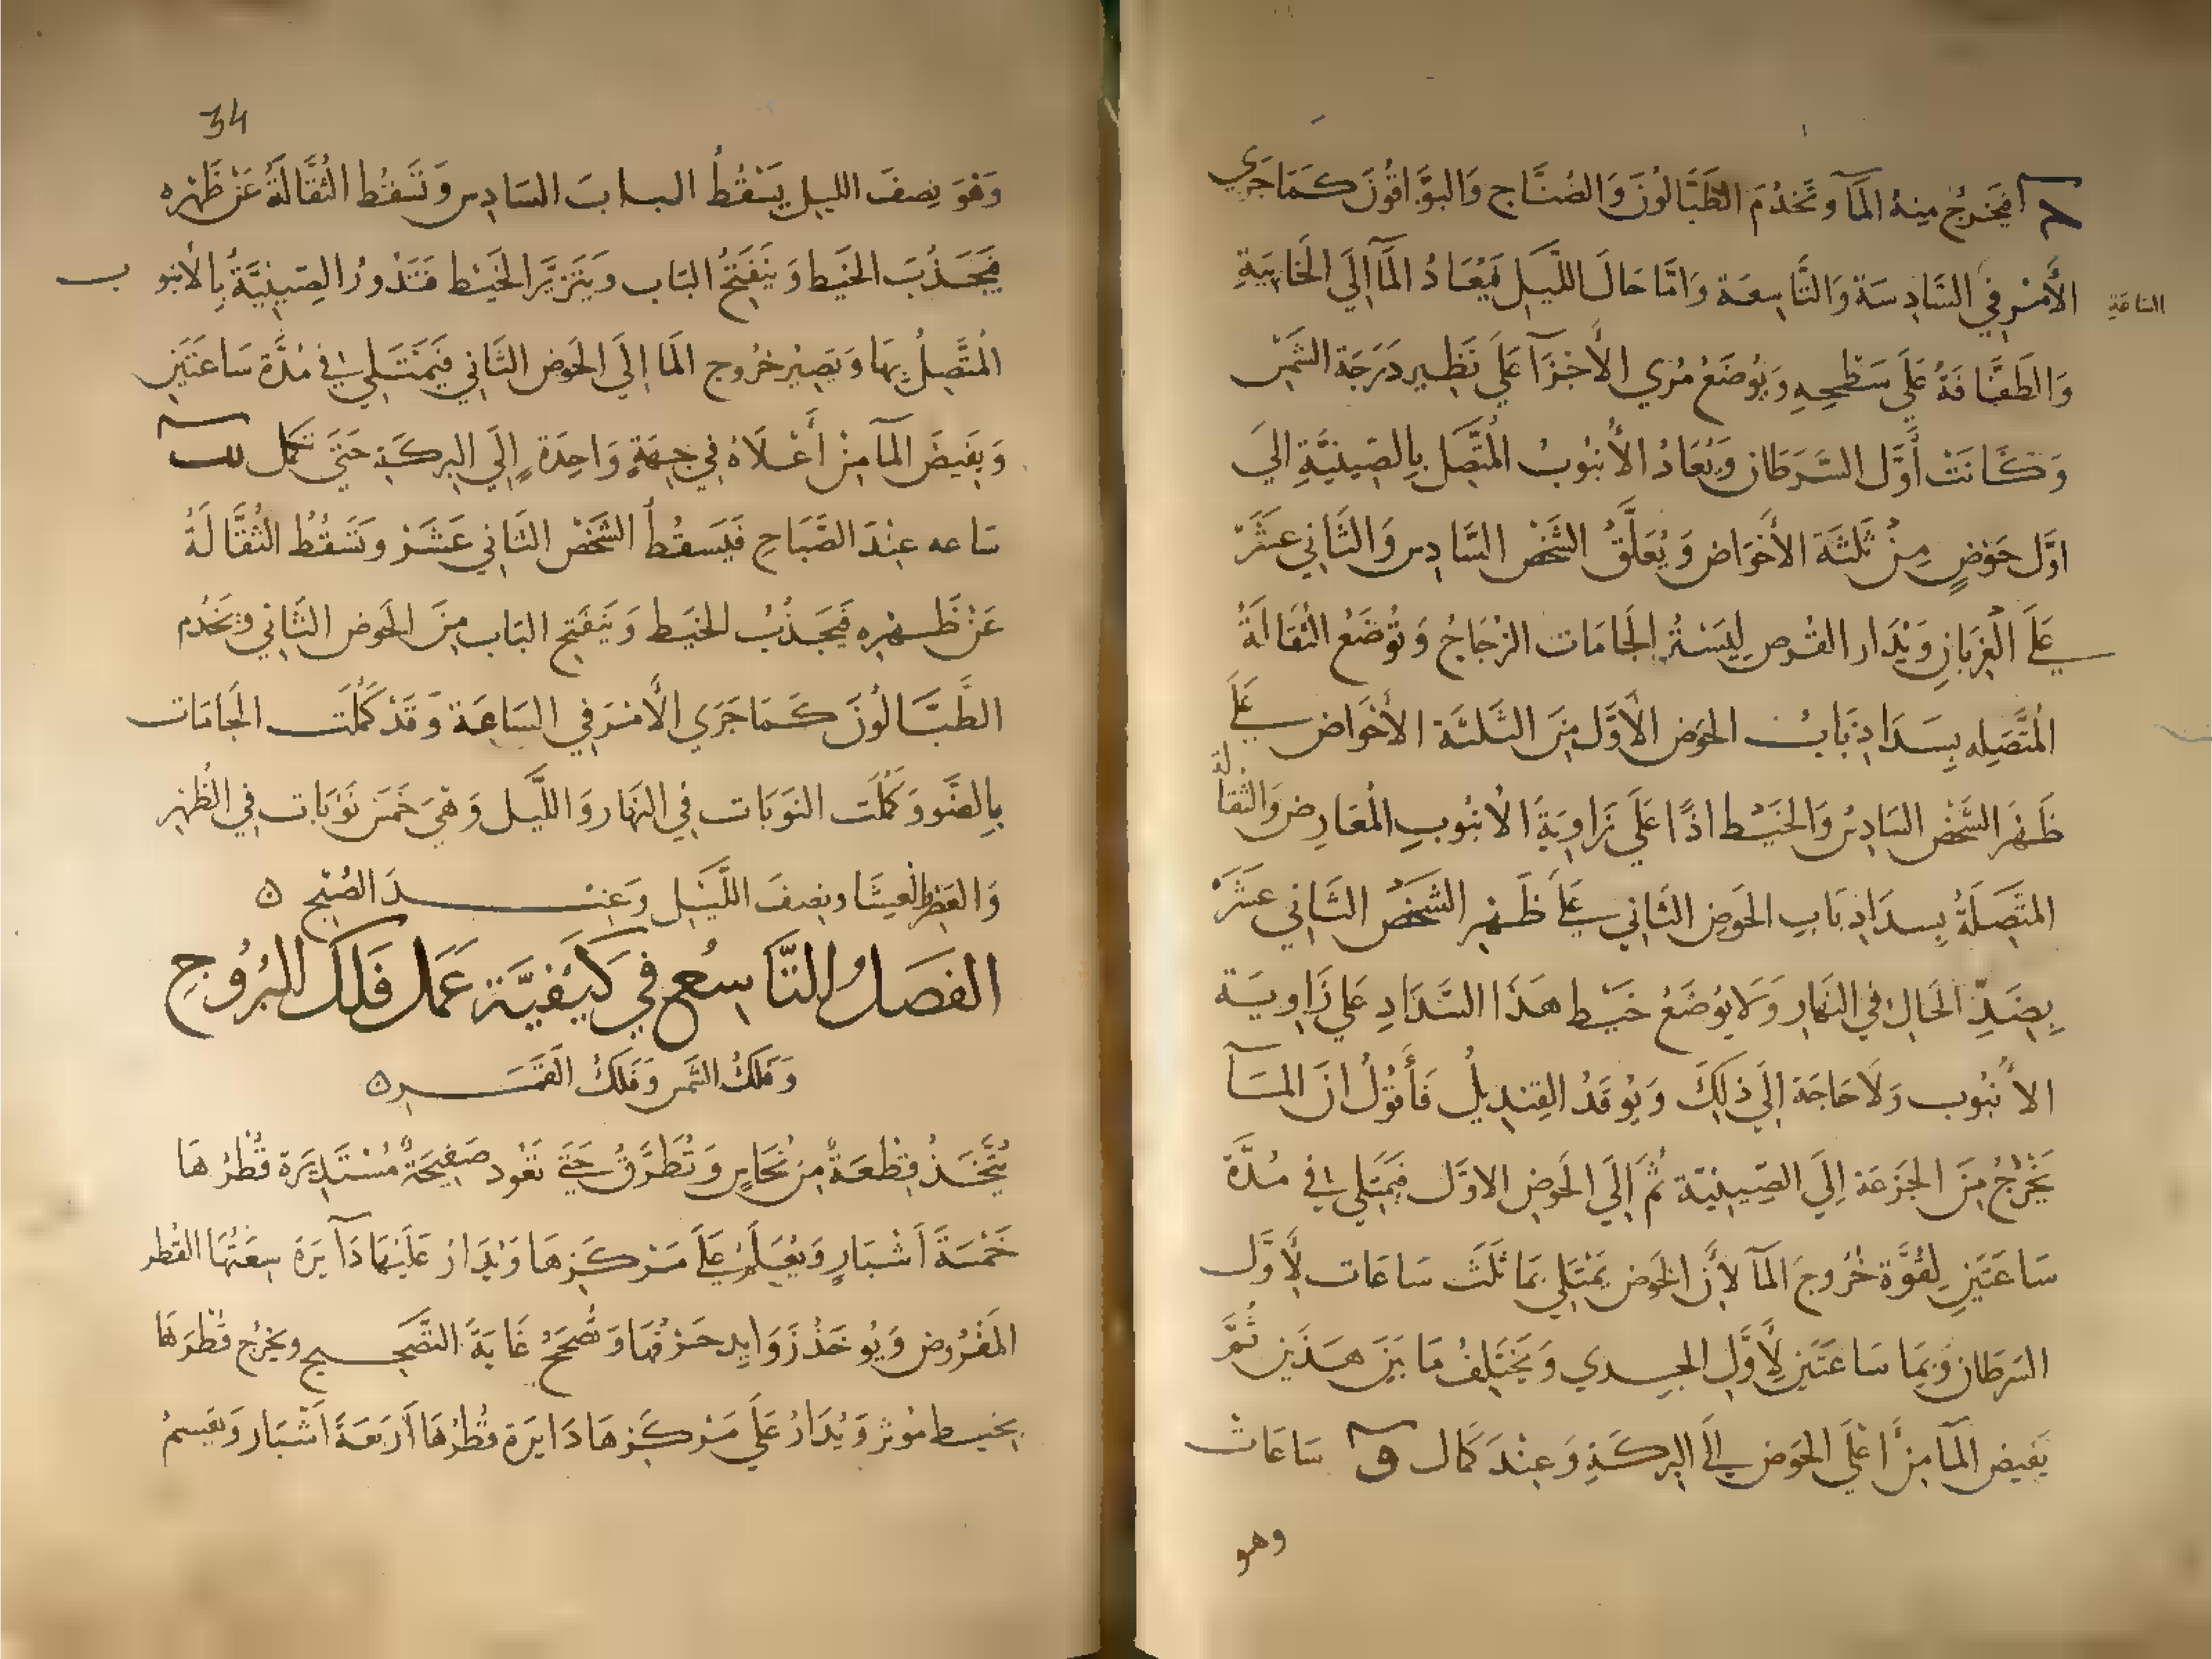 فيخرج منه المآ وتخدم الطَبَّالُونَ وَالصُنَّاج وَالبوَّاقُونَ كَمَا جَرَي
الأَمْر فِي السَّادِسَة وَالتَّاسِعَة وَامَّا حَالَ اللَّيل فَيُعَادُ المَآ إِلَي الخَابِيَةِ
الساعة
وَالطَفَّافَةُ عَلَي سَطْحِهِ وَيُوضَعُ مُرِي الأَجْزَآ عَلَي نَظِير دَرَجَة الشَمْس
وَكَانَتْ أَوَّل السَّرَطَان وَيُعَادُ الأُنبُوبُ المُتَّصِل بِالصِينِيَّةِ الَي
اوَّل حَوْضٍ مِنْ ثَلثَة الأَحْوَاض وَيُعَلَّقُ الشَّخْص السَّادِس وَالثَّانِي عَشَرْ
عَلَي الغِرْبَانِ وَيُدَار القُرص لِيَسْتُر الجَامَات الزُجَاجُ وَتُوضَعُ الثقَالَةُ
المُتَّصِلَه بِسَدَادِ بَابُ الحَوض الأَوَّل مِنَ الثَلثَة الأَحْوَاض عَلَي
ظَهرَ الشَّخْص السَادِسُ وَالخَيْط اذًا عَلَي زَاوِيَةَ الأنبُوبِ المُعَارِض وَالثُقالة
المتَّصِلَةُ بِسدَادِ بَابِ الحَوض الثَاني عَلَي ظَهر الشَخْصُ الثَّانِي عَشَرْ
بِضدِّ الحَال فِي النَهَارِ وَلَا يُوضَعُ خَيْط هَذَا السَّدَادِ عَلي زَاوِيَة
الأُنبُوب وَلَا حَاجَة إِلَي ذلِكَ وَيُوقَدُ القِندِيلُ فَأَقُولُ انَ المَآ
يَخْرُجُ مِنَ الجَزعَة إِلَي الصِّينِيّة ثُمَّ إِلَي الحَوض الاوَّل فَيَمتَلِي فِي مُدَّة
سَاعَتَينِ لِقُوَّة خُرُوجَ المَآ لأَنَّ الحَوض يَمْتَلِي بمَا ثَلَث سَاعَات لأَوَّل
السَرطَان وَبِمَا سَاعَتَين لِأَوَّل الجدي وَيَخْتَلِفُ مَا بَيْن هَذَين ثُمَّ
يَفيض المَآ مِنْ اعْلَي الحَوض إِلَى البركَةِ وَعِنْدَ كَمَال و سَاعَات
وهو
34
وَهْوَ نِصفَ الليل يَسْقُطُ الباب السَادِس وَتَسقُط الثُقَّالَةُ عَنْ ظَهْره
فَيجَذُبَ الخَيَط وَيَنفَتِحُ البَاب وَيَتَزيَّر الخَيْط فَتَدُورُ الصِينِيَّةُ بِالأنبوب
المُتَّصِلُ بِهَا وَيَصِيُر خرُوج المَا إِلَي الحَوض الثَاني فَيَمْتَلي فِي مُدَّة سَاعَتَيَن
وَيَفيضَ المآ مِنْ أَعْلَاهُ فِي جِهَةٍ وَاحِدَة إِلَي البركَة حَتَّي تَكمل
سَاعه عِنْدَ الصَّبَاحِ فَيَسقُطُ الشَّخْص الثَّانِي عَشَرْ وَتَسْقُطُ الثُقَّالَةُ
عَنْ ظَهرِه فَيجَذُبُ الخيَط وَيَنفَتِح البَاب مِنَ الحَوض الثَّانِي وَتَخْدُم
الطَّبَّالُونَ كَمَا جَرَي الأَمْرَ فِي السَاعَة وَقَدْ كَمُلَت الجَامَات
بِالضَّو وَكمُلَت النوَبَات فِي النَهَار وَاللَّيل وَهْيَ خَمْسَ نَوْبَات فِي الظُهْر
وَالعَصْر وَالعِشَا وبنصفَ اللَّيَل وَعِنْدَ الصُبْح ه
الفَصَل التَّاسِعُ فِي كَيْفيَّة عَمَل فَلَك البُرُوجِ
وَفلكُ الشَمس وَفَلكُ القَمَر ه
يُتَّخَذُ قِطعَةٌ مِن نُحَاسٍ وَتُطَرَّقُ حَتَّي تَعُود صَفِيحَةً مُسْتَدِيرَة قُطْرُهَا
خَمْسَةَ أَشْبَارٍ وَيُعَلَّمُ عَلَى مَرْكَزهَا وَيُدَارُ عَلَيْهَا دَآيرَة سِعَتُهَا القُطر
المَفرُوض وَيُوخَذُ زَوَايد حَرْفهَا وَتُصَحَّحُ غَايَةَ التَصْحِيح ويخرُج قُطْرَهَا
بِخيط مُوثر وَيُدَارُ عَلَي مَرْكَزهَا دَايرَة قُطْرُهَا أَرَبَعَةَ أَشْبَار وَيقسمُ